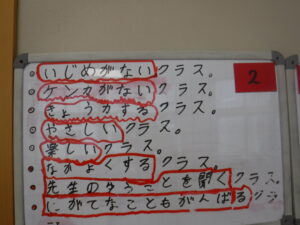 いじめがないクラス。
ケンカがないクラス。
きょう力するクラス。
やさしいクラス。
楽しいクラス。
なかよくするクラス。
先生のゆうことを聞くクラス。
にがてなこともがんばる
2